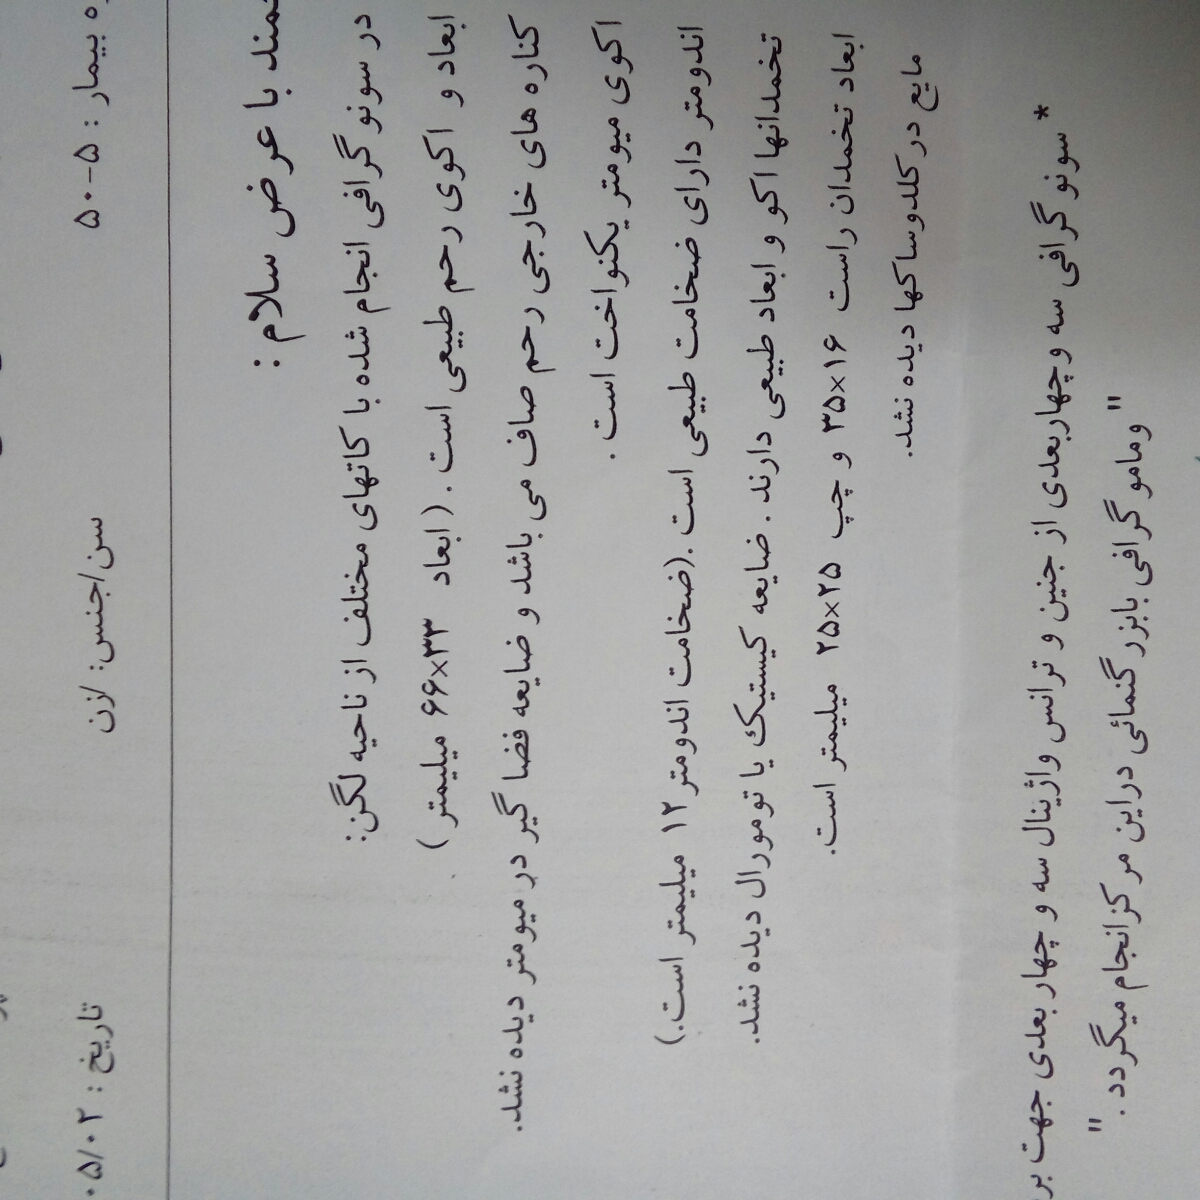 ه بیمار : ۵-۵۰ سن/جنس: /زن تاریخ : ۰۵/۰۲
مند با عرض سلام :
در سونو گرافی انجام شده با کاتهای مختلف از ناحیه لگن:
ابعاد و اکوی رحم طبیعی است . ( ابعاد ۶۶×۳۳ میلیمتر )
کناره های خارجی رحم صاف می باشد و ضایعه فضا گیر در میومتر دیده نشد.
اکوی میومتر یکنواخت است .
اندومتر دارای ضخامت طبیعی است .(ضخامت اندومتر ۱۲ میلیمتر است.)
تخمدانها اکو و ابعاد طبیعی دارند . ضایعه کیستیک یا تومورال دیده نشد.
ابعاد تخمدان راست ۳۵×۱۶ و چپ ۲۵×۲۵ میلیمتر است.
مایع در کلدوساکها دیده نشد.
* سونو گرافی سه و چهاربعدی از جنین و ترانس واژینال سه و چهار بعدی جهت بر
"ومامو گرافی بابزر گنمائی دراین مر کزانجام میگردد . "